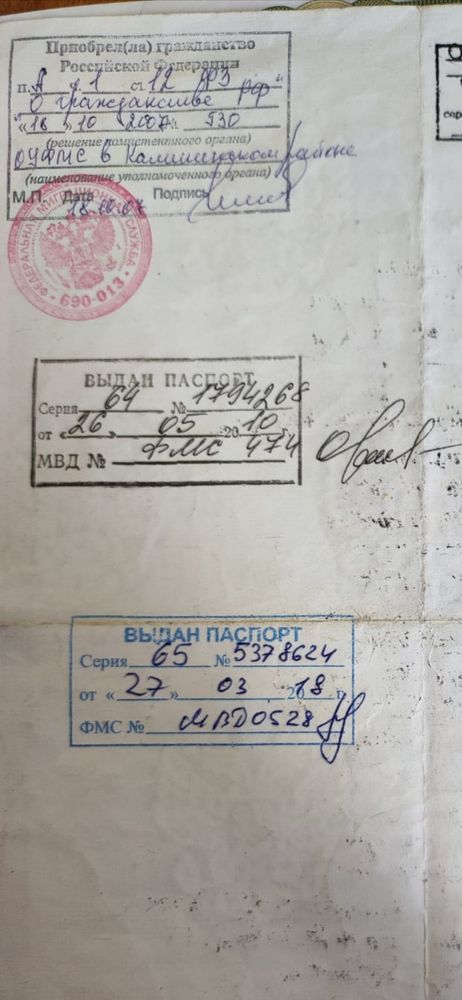 Приобрел(ла) гражданство
Российской Федерации
п. А ч. 1 ст. 12 ФЗ
О гражданстве РФ"
"18" 10 2007 № 530
(решение компетентного органа)
ОУФМС в Калининском районе
(наименование уполномоченного органа)
М.П. Дата Подпись
18.10.07
ФЕДЕРАЛЬНАЯ МИГРАЦИОННАЯ СЛУЖБА
690-013
ВЫДАН ПАСПОРТ
Серия 64 № 1794268
от «26» 05 2010 г.
ФМС 474
МВД №
ВЫДАН ПАСПОРТ
Серия 65 № 5378624
от «27» 03 2018 г.
ФМС № МВД0528